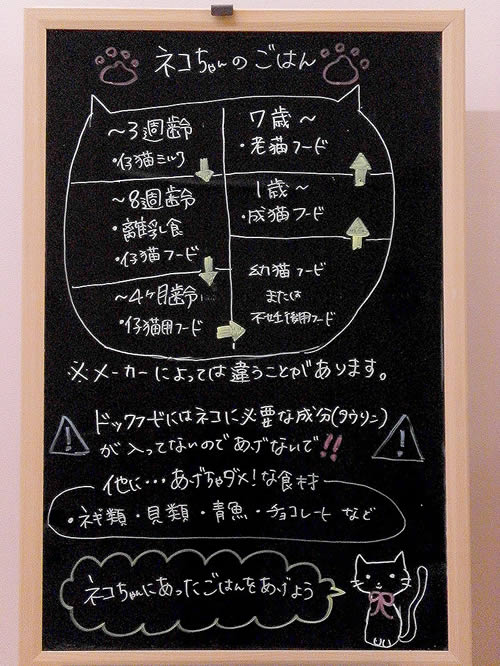 ネコちゃんのごはん
～3週齢
・仔猫ミルク
～8週齢
・離乳食
・仔猫フード
～4ヶ月齢
・仔猫用フード
幼猫フード
または
不妊後用フード
1歳～
・成猫フード
7歳～
・老猫フード
※メーカーによっては違うことがあります。
ドックフードにはネコに必要な成分(タウリン)
が入ってないのであげないで!!
他に…あげちゃダメ!な食材
・ネギ類・貝類・青魚・チョコレートなど
ネコちゃんにあったごはんをあげよう